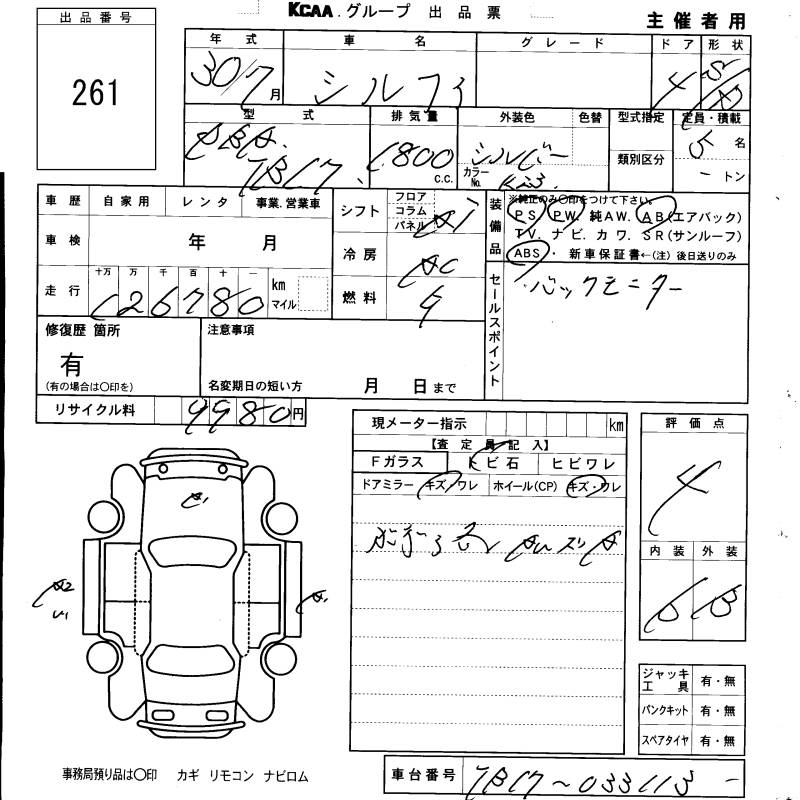 KCAA.グループ 出品票
主催者用
出品番号
261
年式 車名 グレード ドア 形状
30/7月 シルフィ 4
型式 排気量 外装色 色替 型式指定 定員・積載
DBA 1800 c.c. シルバー 5名
TB17
カラーNo. K23
類別区分
トン
車歴 自家用 レンタ 事業.営業車
シフト フロア コラム パネル AT
装備品
※純正のみ〇印をつけて下さい。
PS PW 純AW. AB(エアバック)
TV. ナビ. カワ. SR(サンルーフ)
ABS ・ 新車保証書←(注) 後日送りのみ
車検 年 月
冷房 AC
走行 十万 万 千 百 十 一 km マイル
126780
燃料 G
セールスポイント
バックモニター
修復歴 箇所
有
(有の場合は〇印を)
注意事項
名変期日の短い方 月 日まで
リサイクル料 9980円
現メーター指示 km
【査定員記入】
Fガラス トビ石 ヒビワレ
ドアミラー キズ・ワレ ホイール(CP) キズ・ワレ
評価点
4
内装 外装
B B
A1
A2
U1
A1
ジャッキ工具 有・無
パンクキット 有・無
スペアタイヤ 有・無
事務局預り品は〇印 カギ リモコン ナビロム
車台番号 TB17~033113